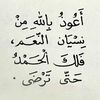 أَعُوذُ بِاللهِ مِنْ
نِسْيَانِ النِّعَمِ،
فَلَكَ الْحَمْدُ
حَتَّى تَرْضَى .